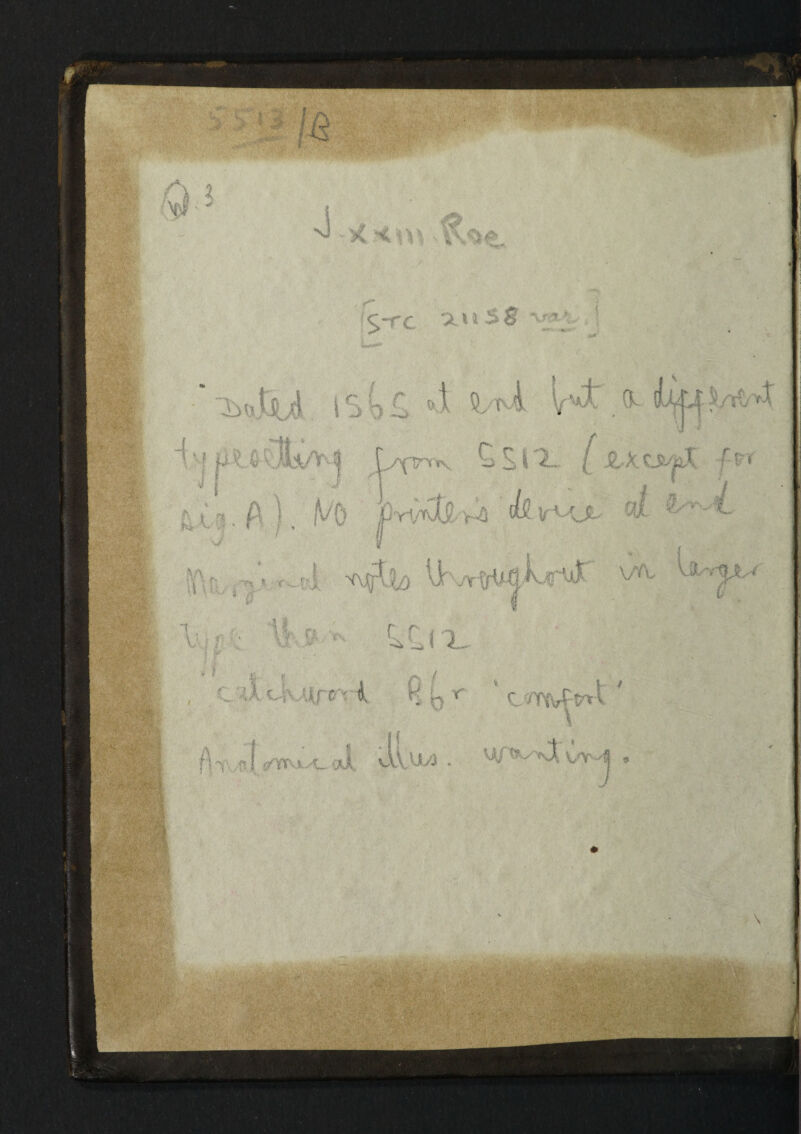 5513/B
W.3
J.xxiii Roe
[STC 21158 var.]
Dated 1565 at end but a different
typesetting from 5512 (except for
sig. A). No printer's device at end
Marginal notes throughout in larger
type than 5512
catchword B6r 'comfort'
Anatomical illus. wanting.